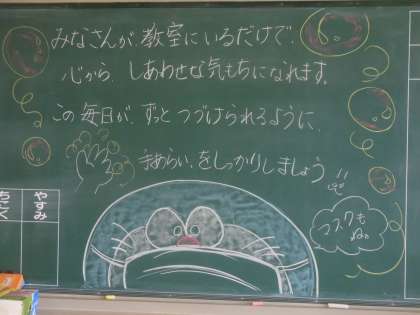 みなさんが、教室にいるだけで、
心から、しあわせな気もちになれます。
この毎日が、ずっとつづけられるように、
手あらい、をしっかりしましょう!!
マスクも
ね。
やすみ
ちこく